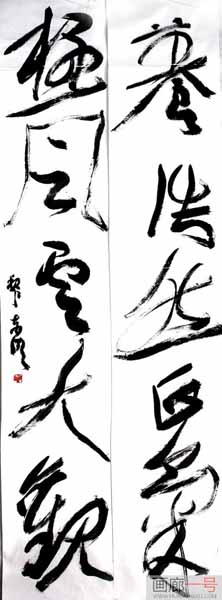 養浩然正氣
極風雲大觀
画廊一号